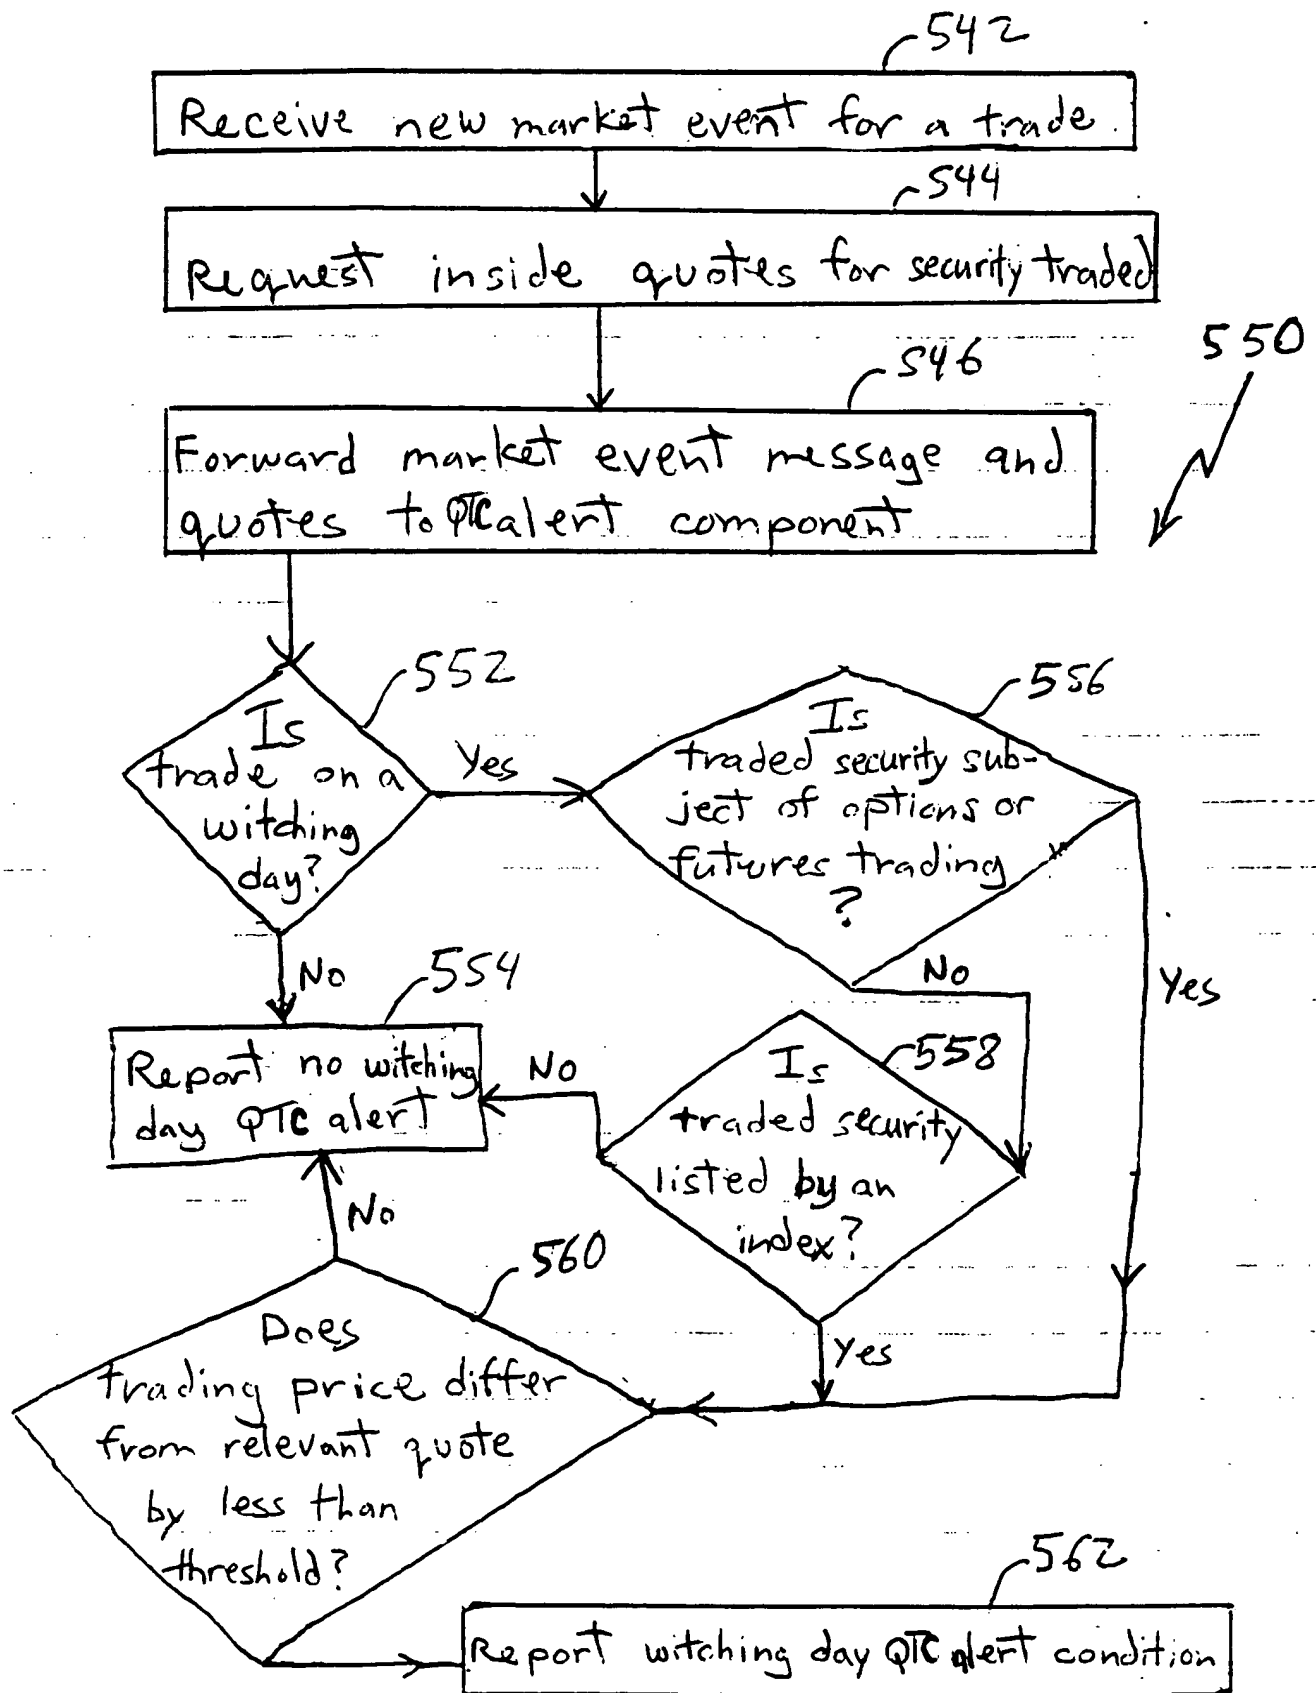 542
Receive new market event for a trade.
544
Request inside quotes for security traded
550
546
Forward market event message and
quotes to QTC alert component
552
Is
trade on a
witching
day?
Yes
556
Is
traded security sub-
ject of options or
futures trading
?
No
554
Report no witching
day QTC alert
No
Yes
No
558
Is
traded security
listed by an
index?
No
Yes
560
Does
trading price differ
from relevant quote
by less than
threshold?
562
Report witching day QTC alert condition